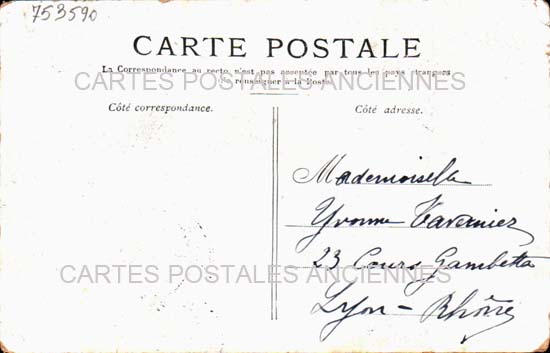 753590
CARTE POSTALE
La Correspondance au recto n'est pas acceptée par tous les pays étrangers
renseigner à la Poste
CARTES POSTALES ANCIENNES
Côté correspondance.
Côté adresse.
Mademoiselle
Yvonne Tavernier
23 Cours Gambetta
CARTES POSTALES ANCIENNES
Lyon - Rhône